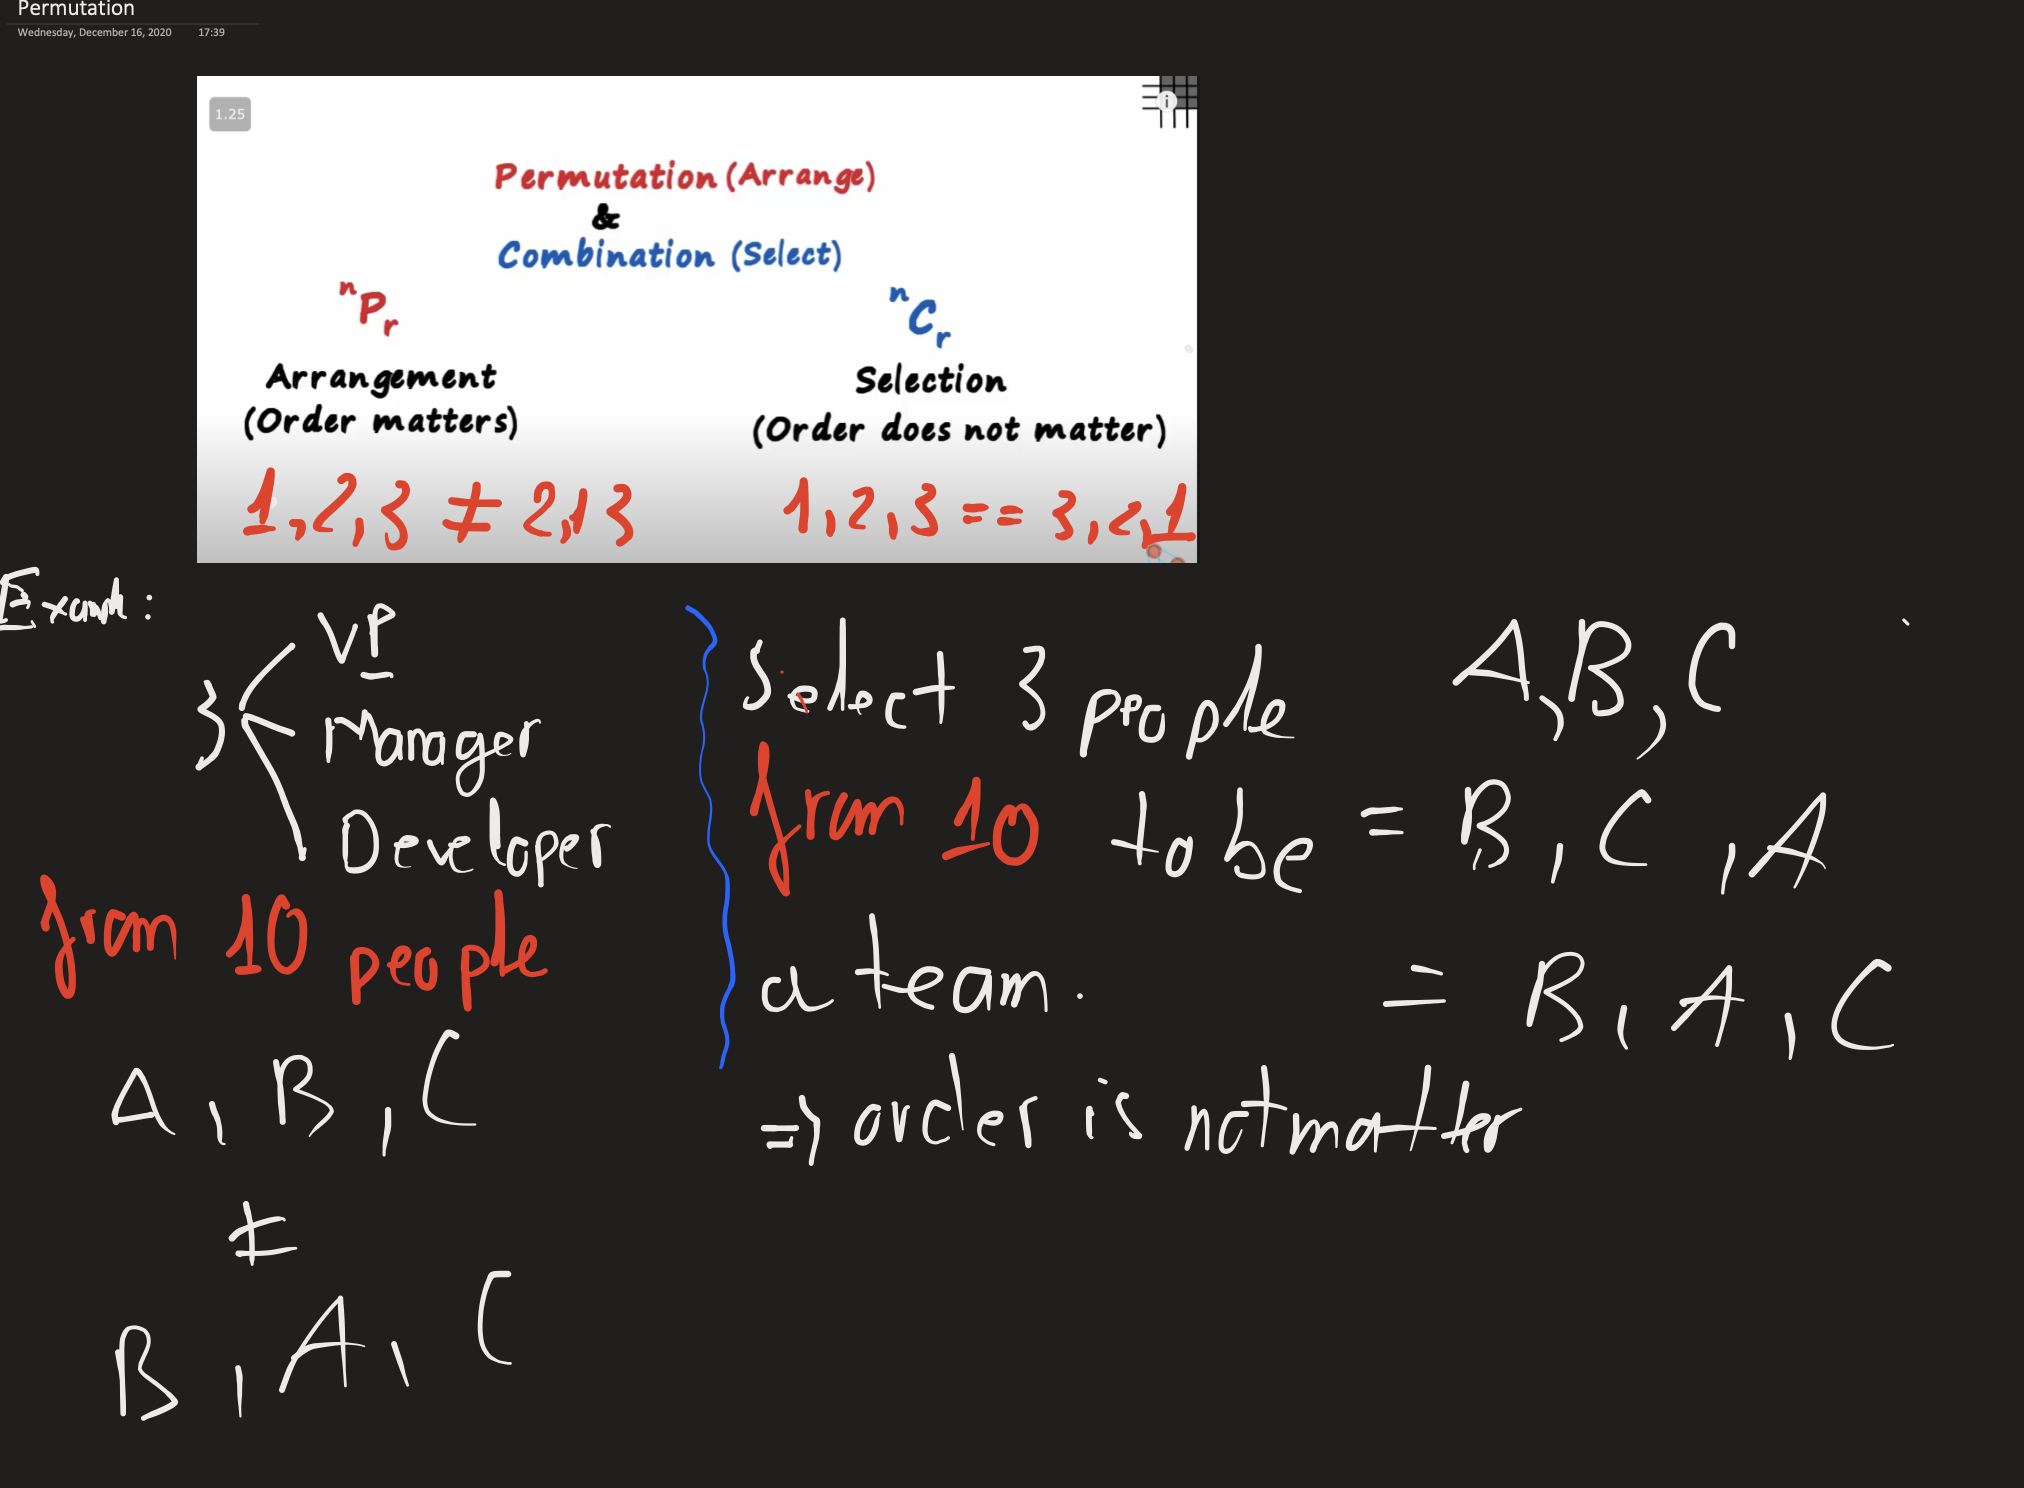 Permutation
Wednesday, December 16, 2020 17:39
1.25
i
Permutation (Arrange)
&
Combination (Select)
nPr
nCr
Arrangement
(Order matters)
Selection
(Order does not matter)
1,2,3 ≠ 2,1 3
1,2,3 == 3,2,1
3
VP
Manager
Developer
from 10 people
A, B, C
≠
B, A, C
Select 3 people
from 10 to be
a team.
=> order is not matter
A, B, C
= B, C, A
= B, A, C